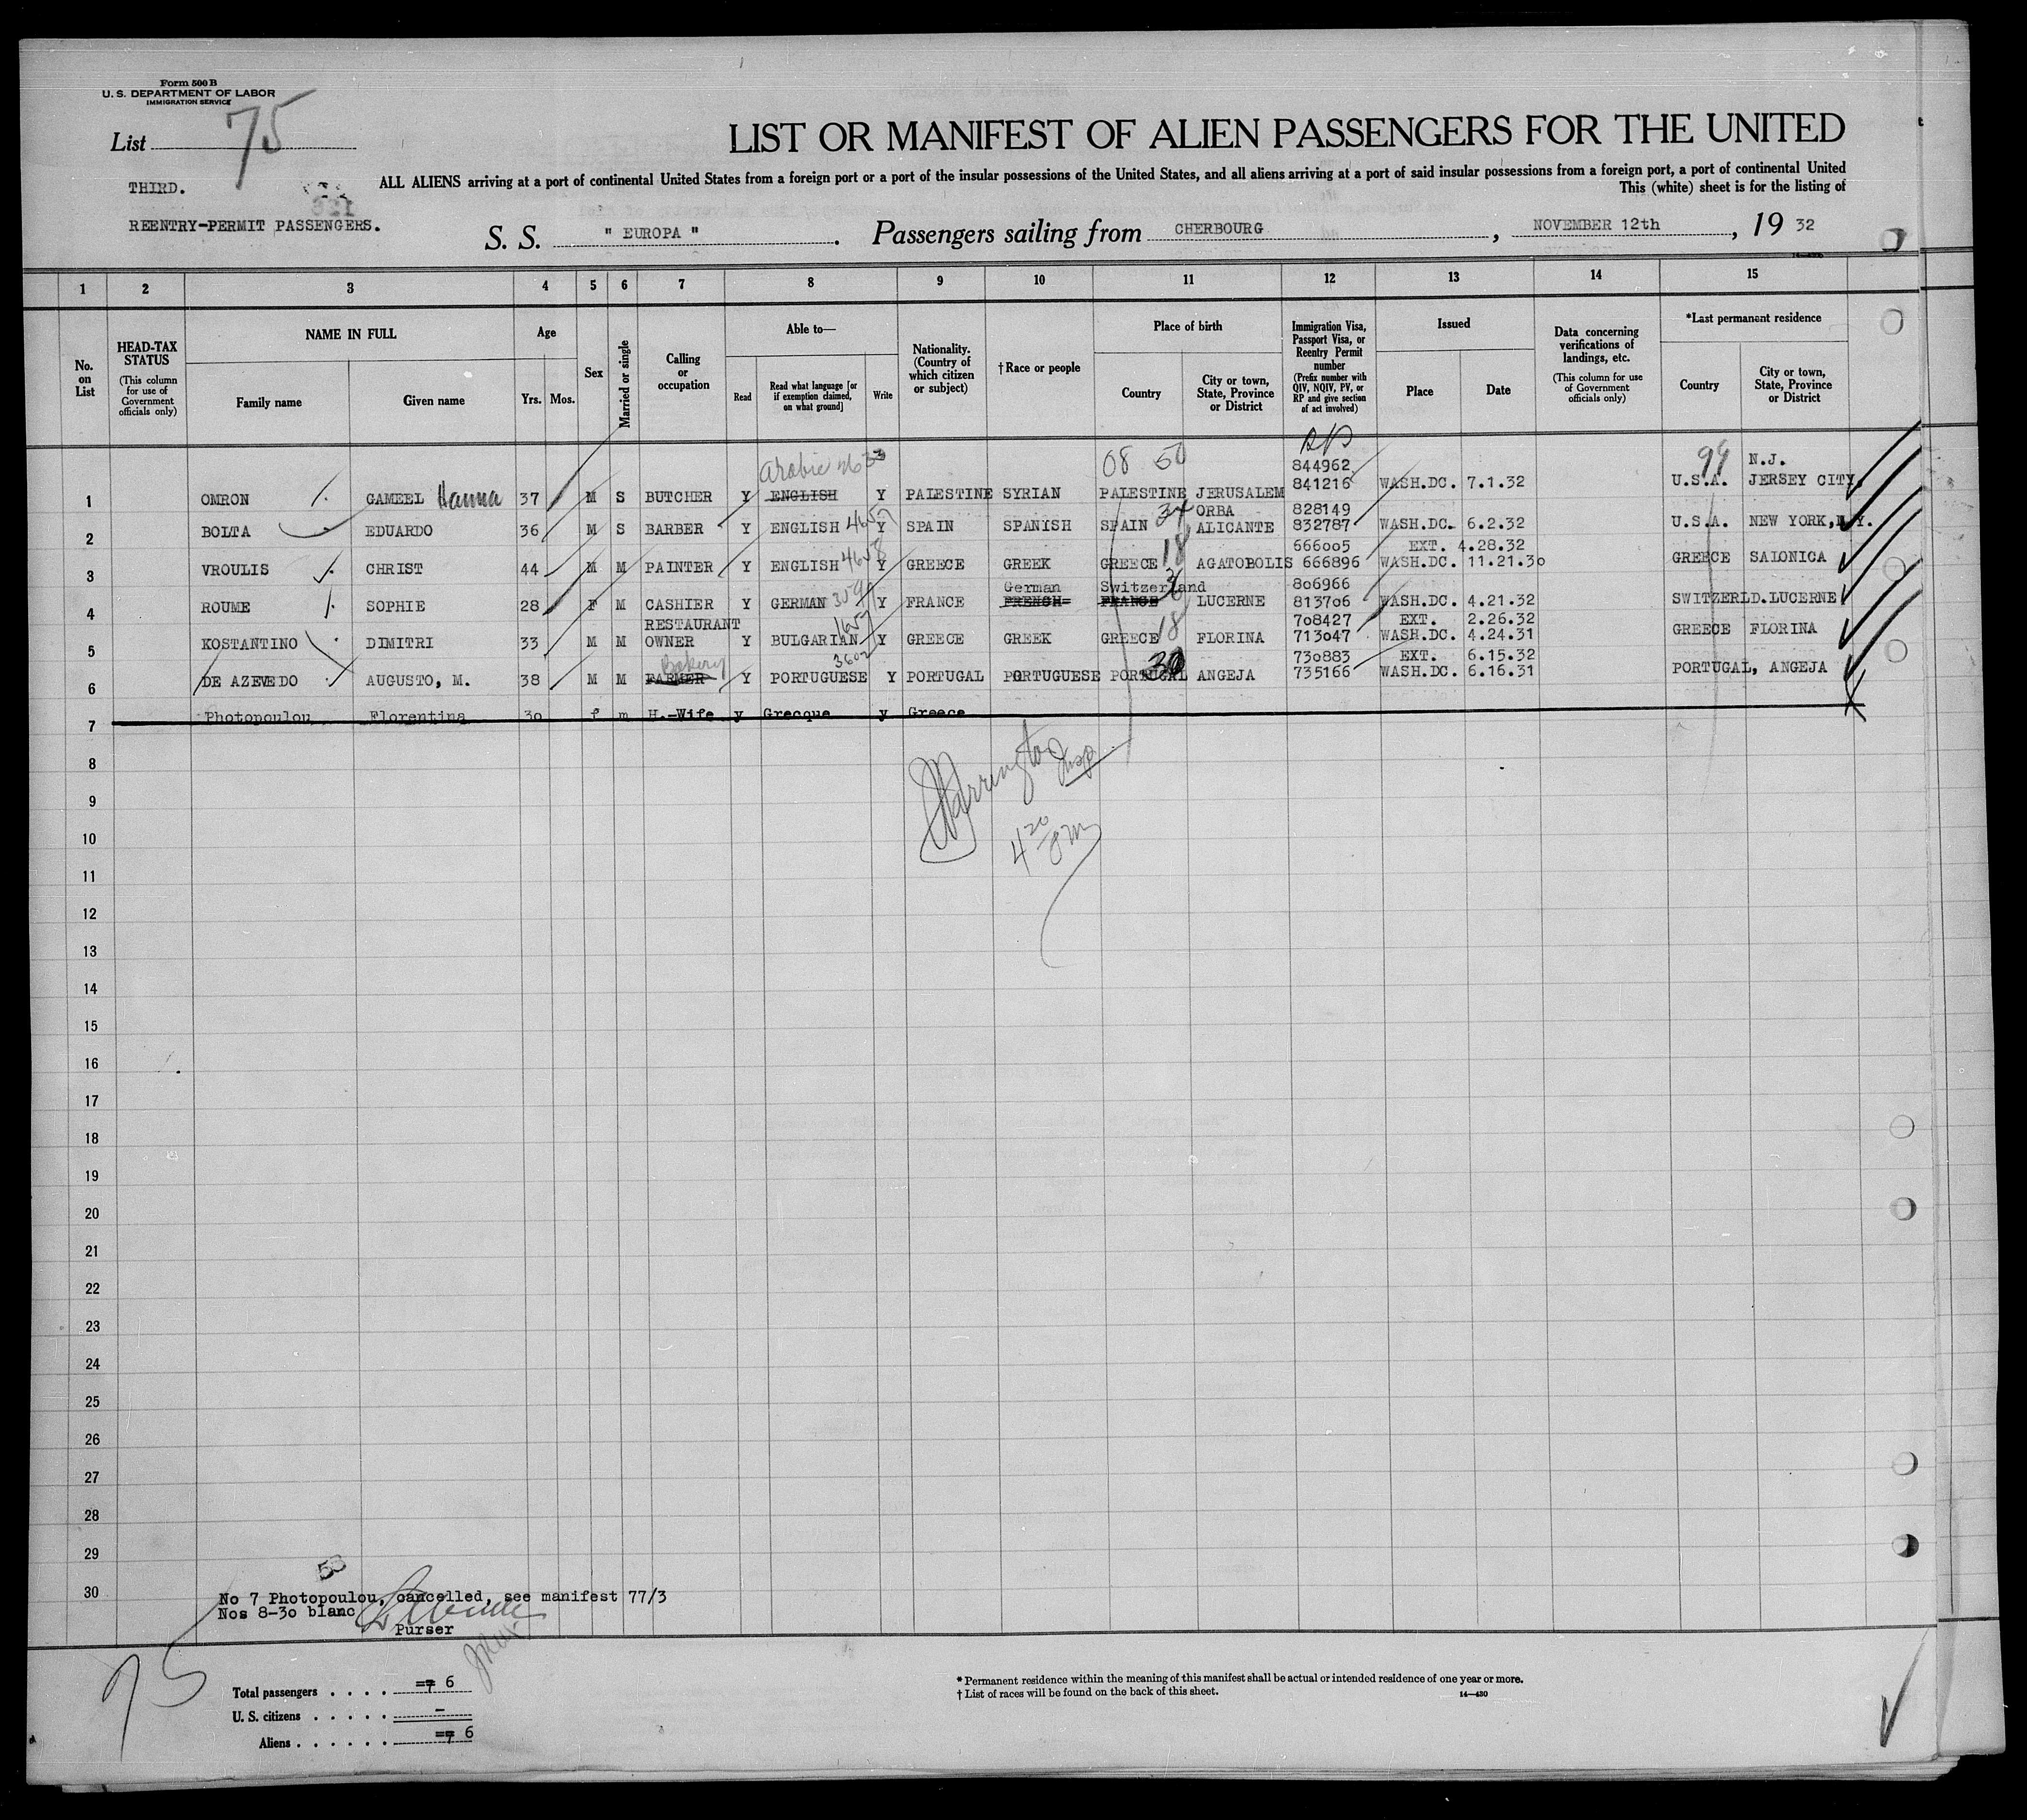 Form 500 B
U. S. DEPARTMENT OF LABOR
IMMIGRATION SERVICE
List 75
LIST OR MANIFEST OF ALIEN PASSENGERS FOR THE UNITED
THIRD.
ALL ALIENS arriving at a port of continental United States from a foreign port or a port of the insular possessions of the United States, and all aliens arriving at a port of said insular possessions from a foreign port, a port of continental United
This (white) sheet is for the listing of
REENTRY-PERMIT PASSENGERS.
S. S. " EUROPA ". Passengers sailing from CHERBOURG, NOVEMBER 12th, 19 32
1 2 3 4 5 6 7 8 9 10 11 12 13 14 15
No. on List
HEAD-TAX STATUS (This column for use of Government officials only)
NAME IN FULL
Family name Given name
Age
Yrs. Mos.
Sex
Married or single
Calling or occupation
Able to—
Read
Read what language [or if exemption claimed, on what ground]
Write
Nationality. (Country of which citizen or subject)
†Race or people
Place of birth
Country
City or town, State, Province or District
Immigration Visa, Passport Visa, or Reentry Permit number (Prefix number with QIV, NQIV, PV, or RP and give section of act involved)
Issued
Place Date
Data concerning verifications of landings, etc. (This column for use of Government officials only)
*Last permanent residence
Country
City or town, State, Province or District
RP
Arabic 08 50 844962 99 N.J.
1 OMRON GAMEEL Hanna 37 M S BUTCHER Y ENGLISH Y PALESTINE SYRIAN PALESTINE JERUSALEM 841216 WASH.DC. 7.1.32 U.S.A. JERSEY CITY.
34 ORBA 828149
2 BOLTA EDUARDO 36 M S BARBER Y ENGLISH Y SPAIN SPANISH SPAIN ALICANTE 832787 WASH.DC. 6.2.32 U.S.A. NEW YORK, N.Y.
18 666005 EXT. 4.28.32
3 VROULIS CHRIST 44 M M PAINTER Y ENGLISH Y GREECE GREEK GREECE AGATOPOLIS 666896 WASH.DC. 11.21.30 GREECE SALONICA
German Switzerland 806966
4 ROUME SOPHIE 28 F M CASHIER Y GERMAN Y FRANCE FRENCH FRANCE LUCERNE 813706 WASH.DC. 4.21.32 SWITZERLD. LUCERNE
RESTAURANT 18 708427 EXT. 2.26.32
5 KOSTANTINO DIMITRI 33 M M OWNER Y BULGARIAN Y GREECE GREEK GREECE FLORINA 713047 WASH.DC. 4.24.31 GREECE FLORINA
Bakery 3602 730883 EXT. 6.15.32
6 DE AZEVEDO AUGUSTO, M. 38 M M FARMER Y PORTUGUESE Y PORTUGAL PORTUGUESE PORTUGAL ANGEJA 735166 WASH.DC. 6.16.31 PORTUGAL, ANGEJA
7 Photopoulou Florentina 30 f m H.-Wife y Grecque y Greece
8
9
10
11
12
13
14
15
16
17
18
19
20
21
22
23
24
25
26
27
28
29
30
No 7 Photopoulou, cancelled, see manifest 77/3
Nos 8-30 blanc
Purser
75
Total passengers . . . . 7 6
U. S. citizens . . . . . -
Aliens . . . . . . 7 6
* Permanent residence within the meaning of this manifest shall be actual or intended residence of one year or more.
† List of races will be found on the back of this sheet.
14—430